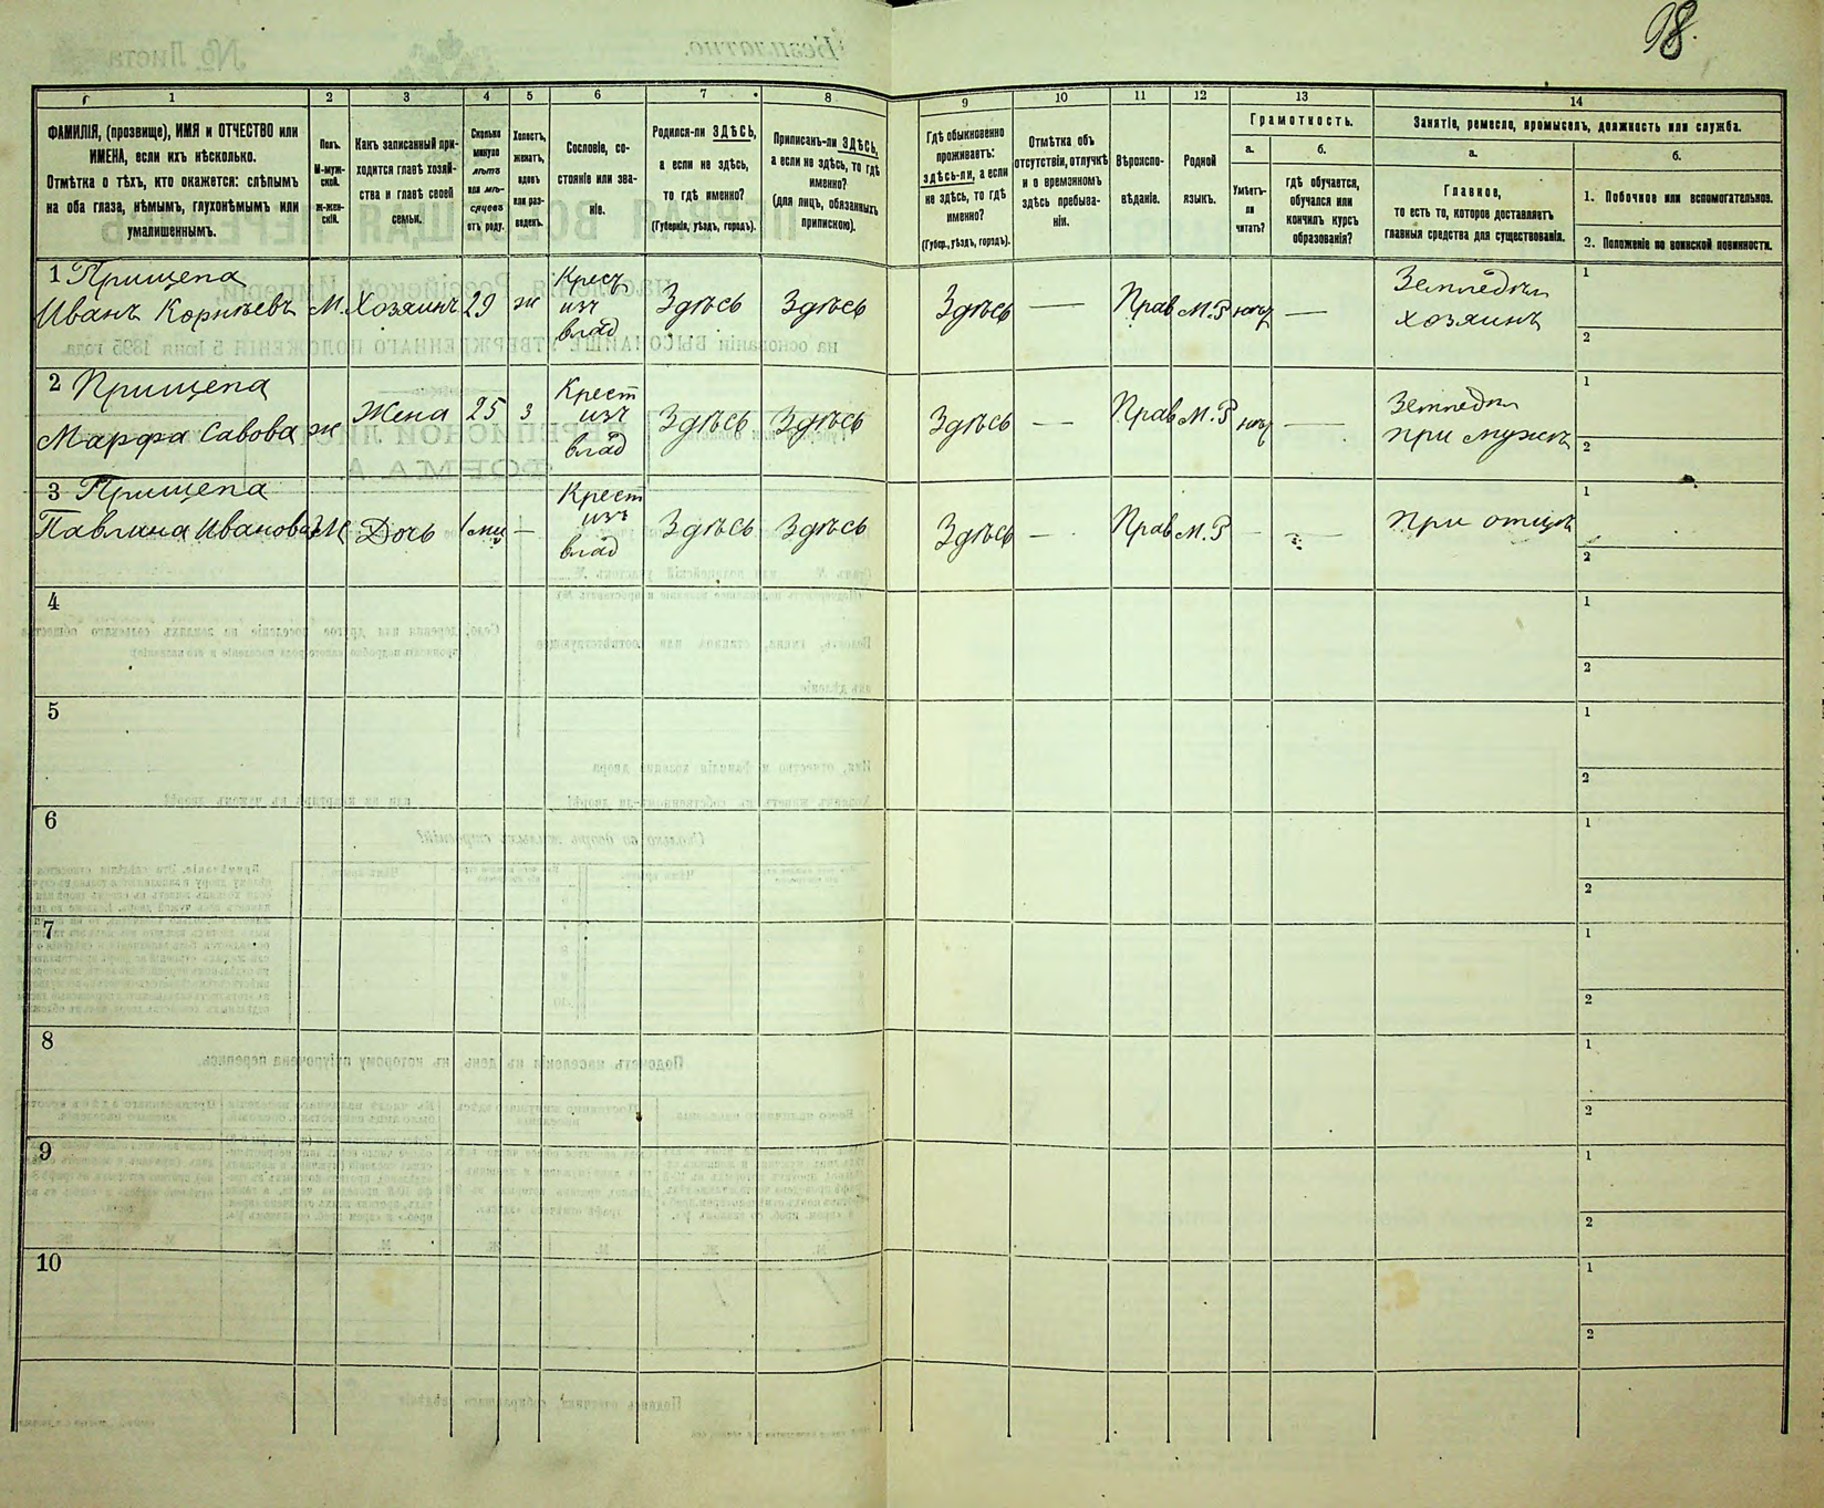 98.
1
2
3
4
5
6
7
8
9
10
11
12
13
14
ФАМИЛІЯ, (прозвище), ИМЯ и ОТЧЕСТВО или
ИМЕНА, если ихъ нѣсколько.
Отмѣтка о тѣхъ, кто окажется: слѣпымъ
на оба глаза, нѣмымъ, глухонѣмымъ или
умалишеннымъ.
Полъ.
М-муж-
ской.
Ж-жен-
скій.
Какъ записанный при-
ходится главѣ хозяй-
ства и главѣ своей
семьи.
Сколько
минуло
лѣтъ
или мѣ-
сяцевъ
отъ роду.
Холостъ,
женатъ,
вдовъ
или раз-
веденъ.
Сословіе, со-
стояніе или зва-
ніе.
Родился-ли ЗДѢСЬ,
а если не здѣсь,
то гдѣ именно?
(Губернія, уѣздъ, городъ).
Приписанъ-ли ЗДѢСЬ,
а если не здѣсь, то гдѣ
именно?
(для лицъ, обязанныхъ
припискою).
Гдѣ обыкновенно
проживаетъ:
здѣсь-ли, а если
не здѣсь, то гдѣ
именно?
(Губер., уѣздъ, городъ).
Отмѣтка объ
отсутствіи, отлучкѣ
и о временномъ
здѣсь пребыва-
ніи.
Вѣроиспо-
вѣданіе.
Родной
языкъ.
Грамотность.
а.
Умѣетъ-
ли
читать?
б.
гдѣ обучается,
обучался или
кончилъ курсъ
образованія?
Занятіе, ремесло, промыселъ, должность или служба.
а.
Главное,
то есть то, которое доставляетъ
главныя средства для существованія.
б.
1. Побочное или вспомогательное.
2. Положеніе по воинской повинности.
1 Прищепа
Иванъ Корнѣевъ М. Хозяинъ 29 ж
Кресъ
изъ
влад
Здѣсь Здѣсь Здѣсь — Прав М.Р нѣтъ —
Земледѣл
хозяинъ
1
2
2 Прищепа
Марфа Савова ж Жена 25 з
Крест
изъ
влад
Здѣсь Здѣсь Здѣсь — Прав М.Р нѣтъ —
Земледѣл
при мужѣ
1
2
3 Прищепа
Павлина Иванова Ж Дочь —
Крест
изъ
влад
Здѣсь Здѣсь Здѣсь — Прав М.Р — —
при отцѣ
1
2
4
1
2
5
1
2
6
1
2
7
1
2
8
1
2
9
1
2
10
1
2